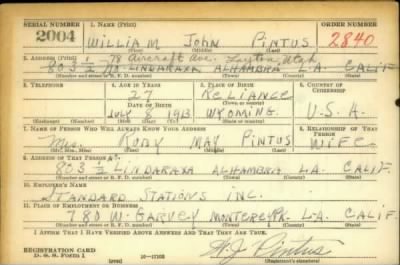 SERIAL NUMBER 1. NAME (Print) ORDER NUMBER
2004 WILLIAM JOHN PINTUS 2840
(First) (Middle) (Last)
78 Aircraft Ave. Layton, Utah
2. ADDRESS (Print)
803 ½ NO. LINDARAXA ALHAMBRA L.A. CALIF
(Number and street or R. F. D. number) (Town) (County) (State)
3. TELEPHONE 4. AGE IN YEARS 5. PLACE OF BIRTH 6. COUNTRY OF CITIZENSHIP
27 RELIANCE
DATE OF BIRTH (Town or county)
JULY 8 1913 WYOMING U.S.A.
(Exchange) (Number) (Mo.) (Day) (Yr.) (State or country)
7. NAME OF PERSON WHO WILL ALWAYS KNOW YOUR ADDRESS 8. RELATIONSHIP OF THAT PERSON
Mrs. RUBY MAY PINTUS WIFE
(Mr., Mrs., Miss) (First) (Middle) (Last)
9. ADDRESS OF THAT PERSON
803 ½ LINDARAXA ALHAMBRA L.A. CALIF.
(Number and street or R. F. D. number) (Town) (County) (State)
10. EMPLOYER'S NAME
STANDARD STATIONS INC.
11. PLACE OF EMPLOYMENT OR BUSINESS
780 W. GARVEY MONTEREY PK. L.A. CALIF.
(Number and street or R. F. D. number) (Town) (County) (State)
I AFFIRM THAT I HAVE VERIFIED ABOVE ANSWERS AND THAT THEY ARE TRUE.
REGISTRATION CARD
D. S. S. Form 1 (over) W. J. Pintus
(Registrant's signature)